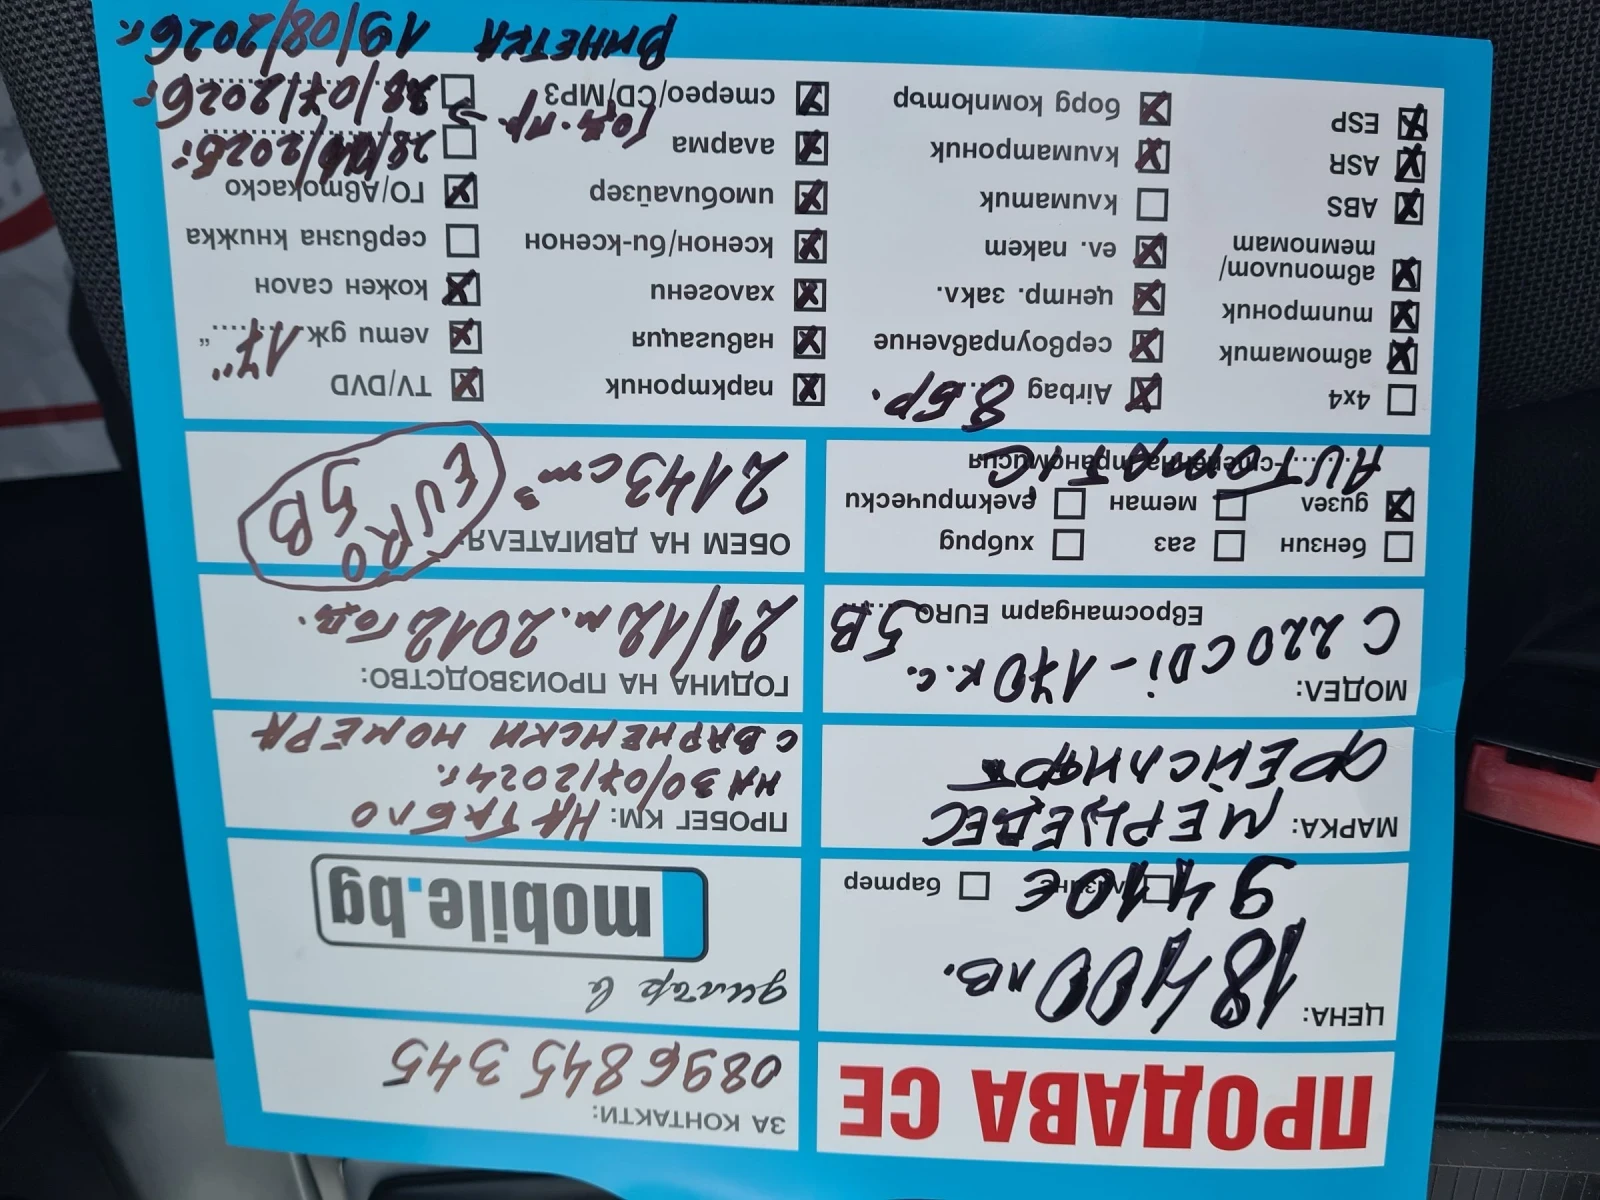 ПРОДАВА СЕ
ЗА КОНТАКТИ:
0896 845 345
ЦЕНА:
18400 лв.
9410 €
бартер
дилър в
mobile.bg
МАРКА: МЕРЦЕДЕС
ФЕЙСЛИФТ
ПРОБЕГ КМ: НА ТАБЛО
НА 30/07/2024г.
С ВАРНЕНСКИ НОМЕРА
МОДЕЛ:
C 220 CDi - 170 к.с.
Евростандарт EURO 5B
ГОДИНА НА ПРОИЗВОДСТВО:
21/12 м. 2012 год.
бензин газ хибрид
дизел метан електрически
AUTOMATIC
-степенна трансмисия
ОБЕМ НА ДВИГАТЕЛЯ:
2143 cm³
EURO 5B
4x4
автоматик
типтроник
автопилот/
темпомат
ABS
ASR
ESP
Airbag 8 БР.
сервоуправление
центр. закл.
ел. пакет
климатик
климатроник
борд компютър
парктроник
навигация
халогени
ксенон/би-ксенон
имобилайзер
аларма
стерео/CD/MP3
TV/DVD
лети дж. 17" "
кожен салон
сервизна книжка
ГО/Автокаско
Год. пр.
28/07/2026г
ВИНЕТКА 19/08/2026г.